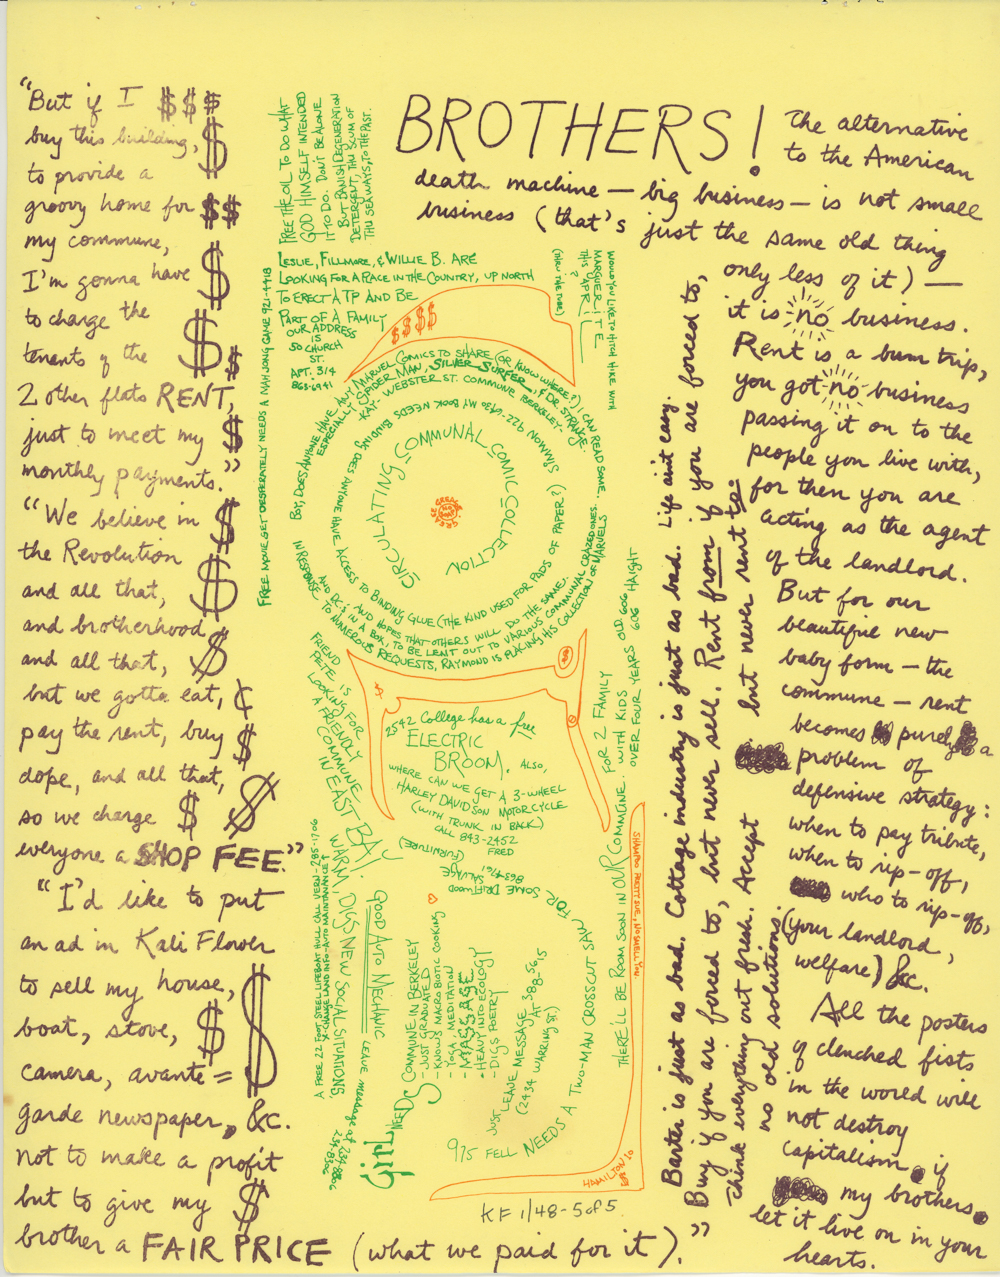 "But if I $$$
buy this building, $
to provide a
groovy home for $$
my commune,
I'm gonna have $
to charge the
tenents of the $
2 other flats RENT, $
just to meet my $
monthly payments."
"We believe in $
the Revolution
and all that, $
and brotherhood
and all that, $
but we gotta eat, ¢
pay the rent, buy $
dope, and all that,
so we charge $ $
everyone a SHOP FEE."
"I'd like to put
an ad in Kali Flower
to sell my house,
boat, stove, $ $
camera, avante=
garde newspaper, &c.
not to make a profit
but to give my $
brother a FAIR PRICE (what we paid for it)."
BROTHERS!
The alternative
to the American
death machine — big business — is not small
business (that's just the same old thing
only less of it) —
it is no business.
Rent is a bum trip,
you got no business
passing it on to the
people you live with,
for then you are
acting as the agent
of the landlord.
But for our
beautiful new
baby form — the
commune — rent
becomes purely a
problem of
defensive strategy:
when to pay tribute,
when to rip-off,
who to rip-off,
(your landlord,
welfare) &c.
All the posters
of clenched fists
in the world will
not destroy
capitalism if
my brothers
let it live on in your
hearts.
Barter is just as bad. Cottage industry is just as bad. Life aint easy.
Buy if you are forced to, but never sell. Rent from if you are forced to,
but never rent to.
Think everything out fresh. Accept
no old solutions.
FREE THE OIL TO DO WHAT
GOD HIMSELF INTENDED
IT TO DO. DON'T BE ALONE
BUT BANISH DEGENERATION
DETERGENT, THU SCUM OF
THU SEAWAYS, TO THE PAST.
LESLIE, FILLMORE, & WILLIE B. ARE
LOOKING FOR A PLACE IN THE COUNTRY, UP NORTH
TO ERECT A TP AND BE
PART OF A FAMILY
OUR ADDRESS
IS
50 CHURCH
ST.
APT. 314
863-6941
WOULD YOU LIKE TO HITCH HIKE WITH
MARGUERITE
THIS APRIL
?
(THRU THE TUBE)
$$$$
FREE MOVIE GET DESPERATELY NEEDS A MAH JONG GAME 921-4418
BOY, DOES ANYONE HAVE ANY MARVEL COMICS TO SHARE (OR KNOW WHERE?) I CAN READ SOME.
ESPECIALLY SPIDER MAN, SILVER SURFER, & DR. STRANGE.
KAT- WEBSTER ST. COMMUNE BERKELEY-
SHANNON 922-6430 MY BOOK NEEDS BINDING DOES ANYONE HAVE ACCESS TO BINDING GLUE (THE KIND USED FOR PADS OF PAPER?)
CIRCULATING COMMUNAL COMIC COLLECTION
IN RESPONSE TO NUMEROUS REQUESTS, RAYMOND IS PLACING HIS COLLECTION OF MARVELS
AND DC'S IN A BOX, TO BE LENT OUT TO VARIOUS COMMUNAL CRAZED ONES.
AND HOPES THAT OTHERS WILL DO THE SAME.
FRIEND
PETE IS
LOOKING FOR
A FRIENDLY
COMMUNE
IN EAST BAY
WARM, DIGS NEW SOCIAL SITUATIONS.
2542 College has a free
ELECTRIC
BROOM. ALSO,
WHERE CAN WE GET A 3-WHEEL
HARLEY DAVIDSON MOTORCYCLE
(WITH TRUNK IN BACK)
CALL 843-2452
FRED
SOME DRIFTWOOD
SALVAGE
863-4761
(FURNITURE)
FOR 2 FAMILY
WITH KIDS OLD 606,
OVER FOUR YEARS 606 HAIGHT
THERE'LL BE ROOM SOON IN OUR COMMUNE.
A FREE 22 FOOT, STEEL LIFEBOAT HULL CALL VERN-285-1706
X-CHANGE LAND INFO-AUTO MAINTANANCE
GOOD AUTO MECHANIC
LEAVE message at 234-8806
234-8306
GIRL NEEDS COMMUNE IN BERKELEY
- JUST GRADUATED
- KNOWS MACROBIOTIC COOKING
- YOGA, MEDITATION
- MASSAGE
- HEAVY INTO ECOLOGY
- DIGS POETRY
JUST LEAVE MESSAGE
AT 388-5615
(2434 WARRING ST.)
975 FELL NEEDS A TWO-MAN CROSSCUT SAW FOR
SHAMPOO PRETTY SUE, NO SMELL YOU.
HAMILTON 10
KF 1/48-5 of 5